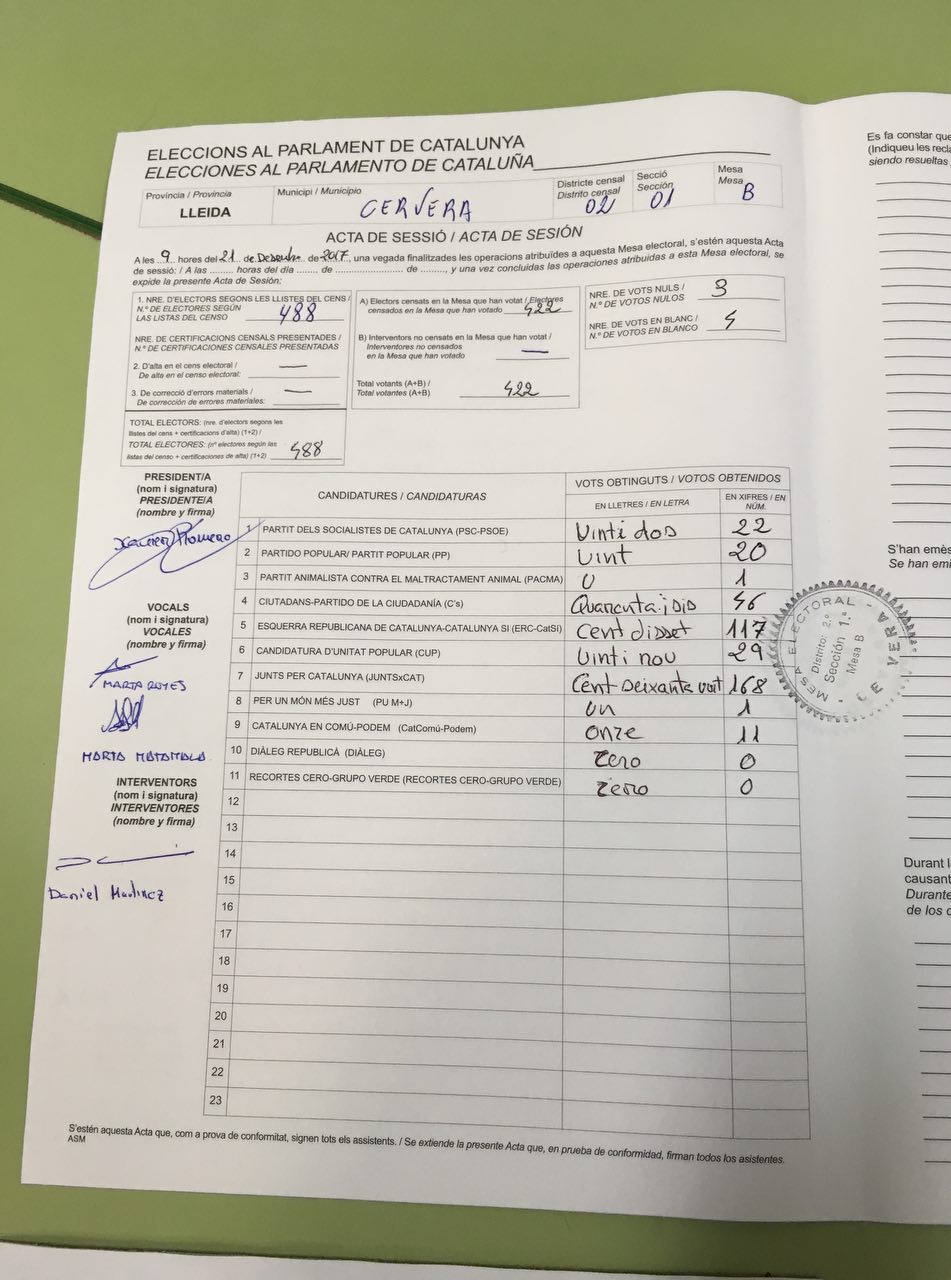 ELECCIONS AL PARLAMENT DE CATALUNYA
ELECCIONES AL PARLAMENTO DE CATALUÑA
Província / Provincia
LLEIDA
Municipi / Municipio
CERVERA
Districte censal
Distrito censal
02
Secció
Sección
01
Mesa
Mesa
B
ACTA DE SESSIÓ / ACTA DE SESIÓN
A les 9 hores del 21 de Desembre de 2017, una vegada finalitzades les operacions atribuïdes a aquesta Mesa electoral, s'estén aquesta Acta
de sessió: / A las ......... horas del día ......... de ........................... de ........, y una vez concluidas las operaciones atribuidas a esta Mesa electoral, se
expide la presente Acta de Sesión:
1. NRE. D'ELECTORS SEGONS LES LLISTES DEL CENS /
N.º DE ELECTORES SEGÚN
LAS LISTAS DEL CENSO
488
NRE. DE CERTIFICACIONS CENSALS PRESENTADES /
N.º DE CERTIFICACIONES CENSALES PRESENTADAS
2. D'alta en el cens electoral /
De alta en el censo electoral: —
3. De correcció d'errors materials /
De corrección de errores materiales: —
TOTAL ELECTORS: (nre. d'electors segons les
llistes del cens + certificacions d'alta) (1+2) /
TOTAL ELECTORES: (nº electores según las
listas del censo + certificaciones de alta) (1+2) 488
A) Electors censats en la Mesa que han votat / Electores
censados en la Mesa que han votado 422
B) Interventors no censats en la Mesa que han votat /
Interventores no censados
en la Mesa que han votado —
Total votants (A+B) /
Total votantes (A+B) 422
NRE. DE VOTS NULS /
N.º DE VOTOS NULOS 3
NRE. DE VOTS EN BLANC /
N.º DE VOTOS EN BLANCO 4
PRESIDENT/A
(nom i signatura)
PRESIDENTE/A
(nombre y firma)
Xavier Romero
VOCALS
(nom i signatura)
VOCALES
(nombre y firma)
MARTA ROYES
MARTA MATAMALA
INTERVENTORS
(nom i signatura)
INTERVENTORES
(nombre y firma)
Daniel Martinez
CANDIDATURES / CANDIDATURAS
VOTS OBTINGUTS / VOTOS OBTENIDOS
EN LLETRES / EN LETRA
EN XIFRES / EN NÚM.
1 PARTIT DELS SOCIALISTES DE CATALUNYA (PSC-PSOE) Vinti dos 22
2 PARTIDO POPULAR/ PARTIT POPULAR (PP) Vint 20
3 PARTIT ANIMALISTA CONTRA EL MALTRACTAMENT ANIMAL (PACMA) U 1
4 CIUTADANS-PARTIDO DE LA CIUDADANÍA (C's) Quaranta.i sis 46
5 ESQUERRA REPUBLICANA DE CATALUNYA-CATALUNYA SI (ERC-CatSí) Cent disset 117
6 CANDIDATURA D'UNITAT POPULAR (CUP) Vinti nou 29
7 JUNTS PER CATALUNYA (JUNTSxCAT) Cent Seixanta vuit 168
8 PER UN MÓN MÉS JUST (PU M+J) un 1
9 CATALUNYA EN COMÚ-PODEM (CatComú-Podem) onze 11
10 DIÀLEG REPUBLICÀ (DIÀLEG) Zero 0
11 RECORTES CERO-GRUPO VERDE (RECORTES CERO-GRUPO VERDE) Zero 0
12
13
14
15
16
17
18
19
20
21
22
23
MESA ELECTORAL - CERVERA
Distrito: 2.º
Sección 1.ª
Mesa B
S'estén aquesta Acta que, com a prova de conformitat, signen tots els assistents. / Se extiende la presente Acta que, en prueba de conformidad, firman todos los asistentes.
ASM
Es fa constar que
(Indiqueu les recla
siendo resueltas
S'han emès
Se han emi
Durant l
causant
Durante
de los c